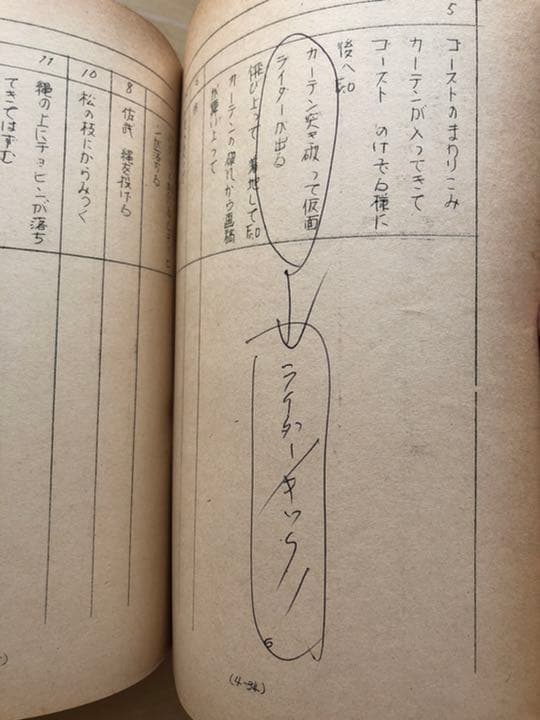 5
ゴーストのまわりこみ
カーテンが入ってきて
ゴースト のけぞる様に
後へF.O
カーテン突き破って仮面
ライダーが出る
飛び上って 着地してF.O
カーテンの破れから
が舞い上って
ライダーキック!
(4-34)
8
佐武 縄を投げる
10
松の枝にからみつく
11
縄の上にチョビンが落ち
てきてはずむ